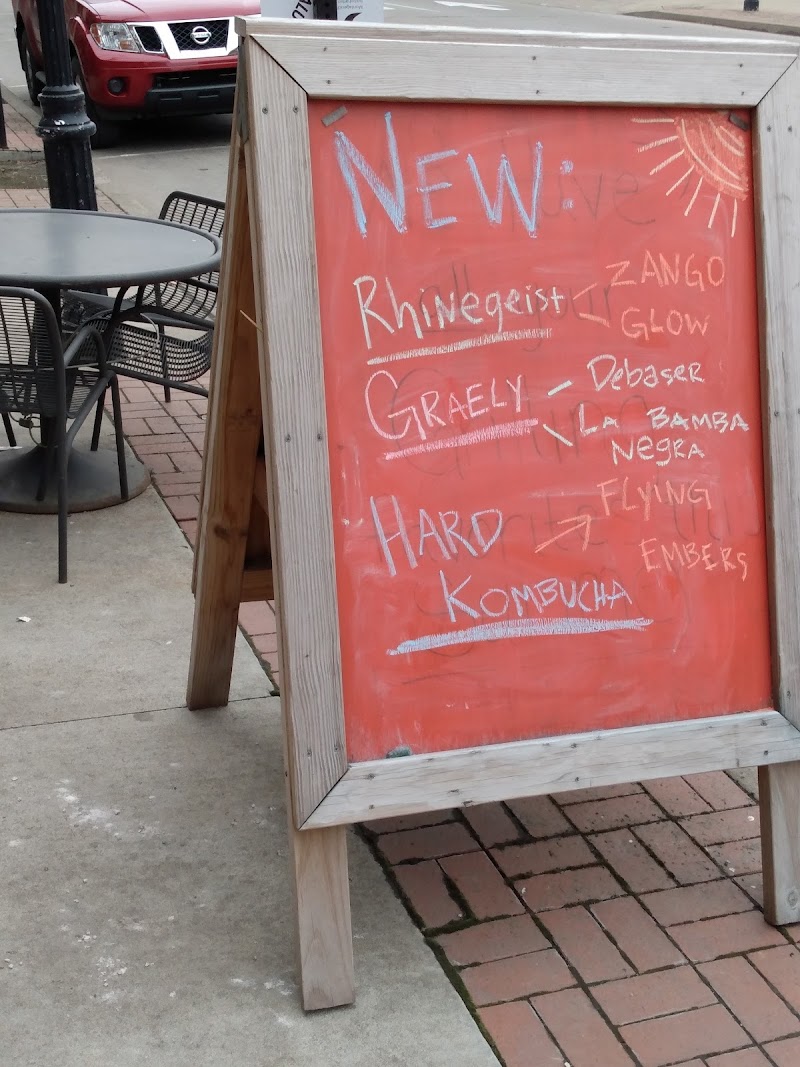 NEW:
Rhinegeist ZANGO
GLOW
GRAELY Debaser
LA BAMBA
NEGRA
HARD FLYING
KOMBUCHA EMBERS